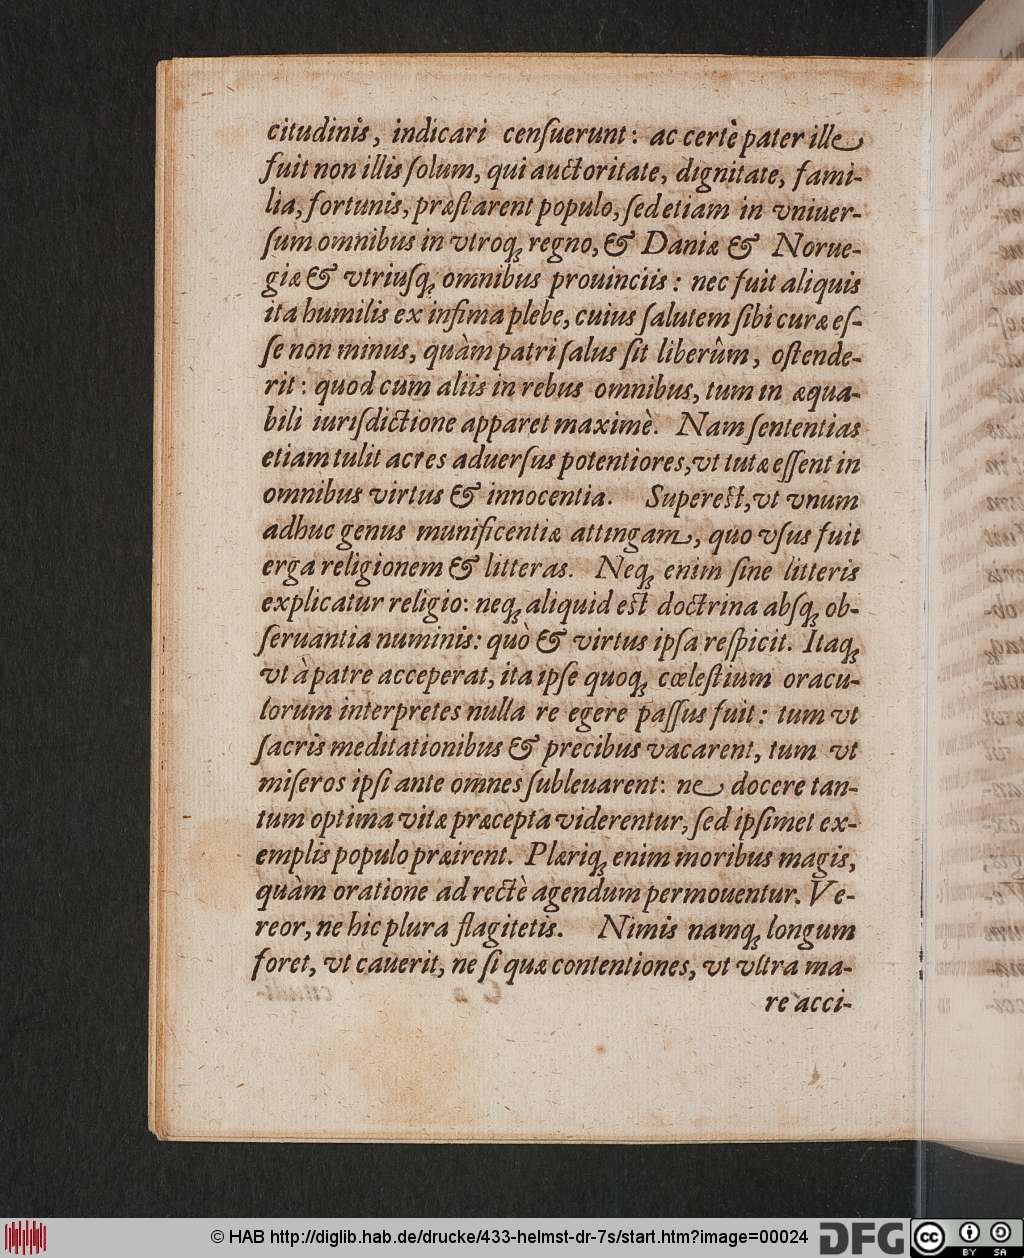 citudinis, indicari cenſuerunt: ac certè pater ille
fuit non illis ſolum, qui auctoritate, dignitate, fami-
lia, fortunis, præſtarent populo, ſed etiam in vniuer-
ſum omnibus in vtroq; regno, & Daniæ & Norue-
giæ & vtriuſq; omnibus prouinciis: nec fuit aliquis
ita humilis ex infima plebe, cuius ſalutem ſibi curæ eſ-
ſe non minus, quàm patri ſalus ſit liberûm, oſtende-
rit: quod cum aliis in rebus omnibus, tum in æqua-
bili iuriſdictione apparet maximè. Nam ſententias
etiam tulit acres aduerſus potentiores, vt tutæ eſſent in
omnibus virtus & innocentia. Supereſt, vt vnum
adhuc genus munificentiæ attingam, quo vſus fuit
erga religionem & litteras. Neq; enim ſine litteris
explicatur religio: neq; aliquid eſt doctrina abſq; ob-
ſeruantia numinis: quò & virtus ipſa reſpicit. Itaq;
vt à patre acceperat, ita ipſe quoq; cœleſtium oracu-
lorum interpretes nulla re egere paſſus fuit: tum vt
ſacris meditationibus & precibus vacarent, tum vt
miſeros ipſi ante omnes ſubleuarent: ne docere tan-
tum optima vitæ præcepta viderentur, ſed ipſimet ex-
emplis populo præirent. Plæriq; enim moribus magis,
quàm oratione ad rectè agendum permouentur. Ve-
reor, ne hic plura flagitetis. Nimis namq; longum
foret, vt cauerit, ne ſi quæ contentiones, vt vltra ma-
re acci-
© HAB http://diglib.hab.de/drucke/433-helmst-dr-7s/start.htm?image=00024
DFG
cc BY SA